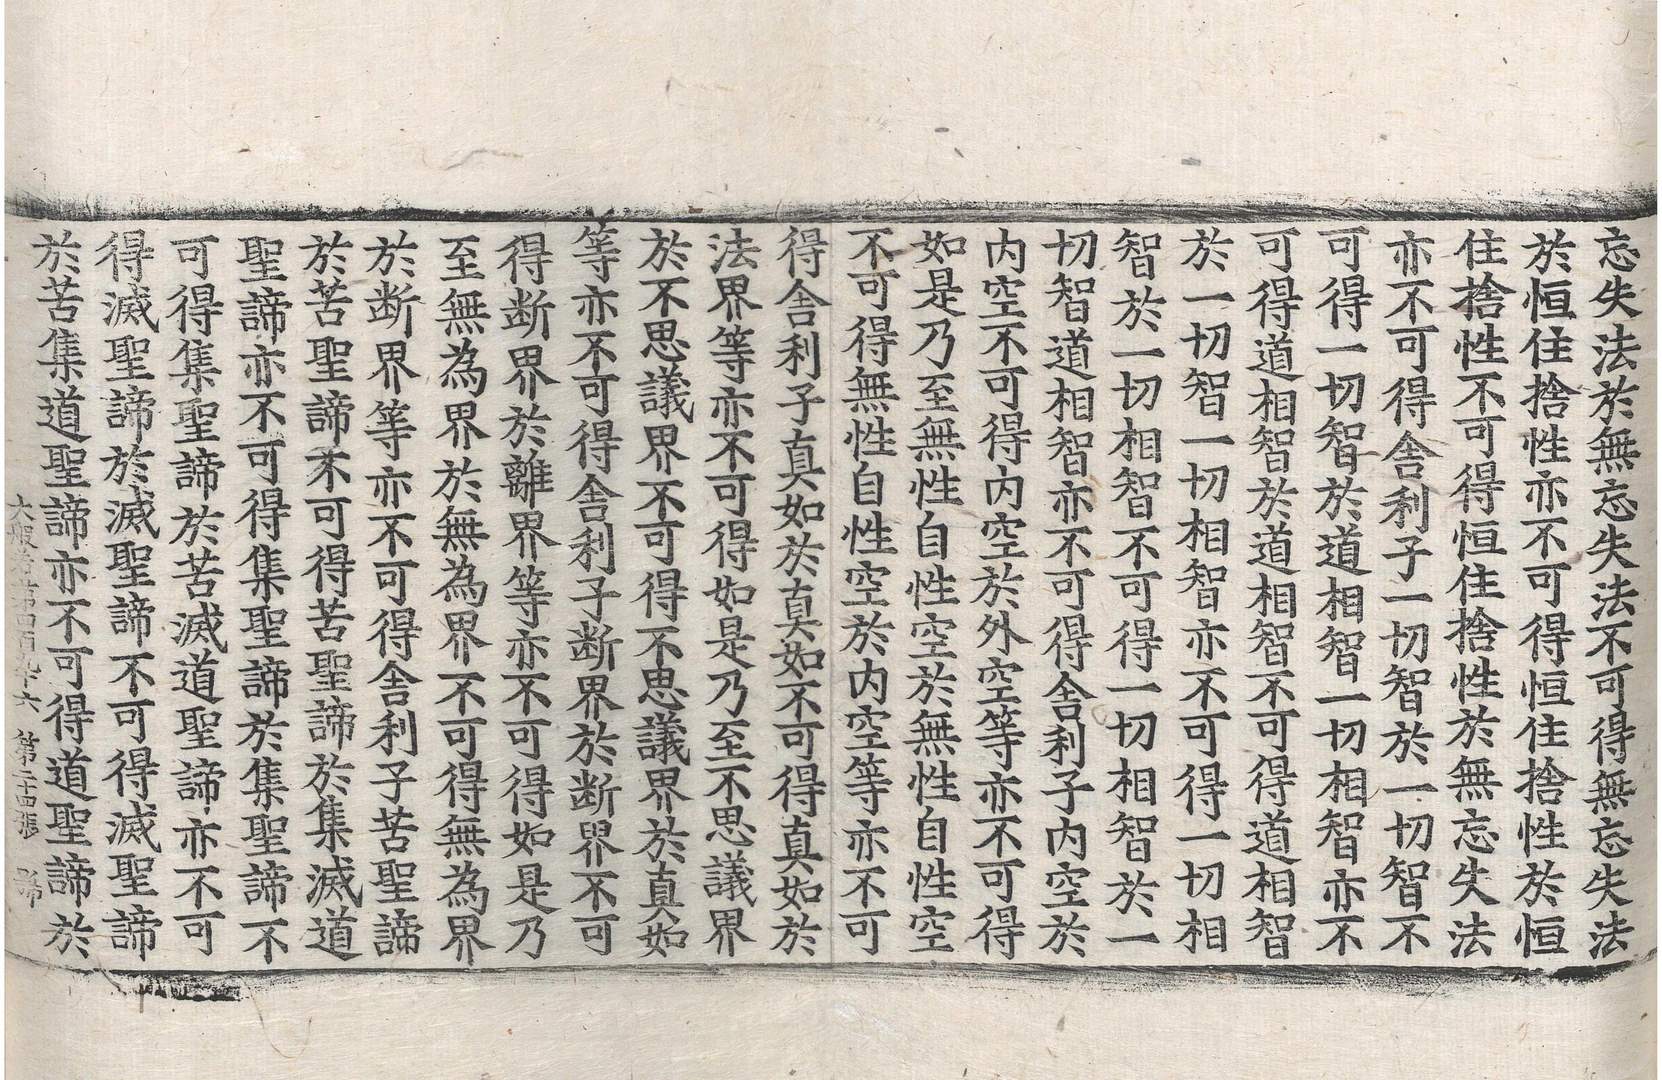 忘失法於無忘失法不可得無忘失法
於恒住捨性亦不可得恒住捨性於恒
住捨性不可得恒住捨性於無忘失法
亦不可得舍利子一切智於一切智不
可得一切智於道相智一切相智亦不
可得道相智於道相智不可得道相智
於一切智一切相智亦不可得一切相
智於一切相智不可得一切相智於一
切智道相智亦不可得舍利子内空於
内空不可得内空於外空等亦不可得
如是乃至無性自性空於無性自性空
不可得無性自性空於内空等亦不可
得舍利子真如於真如不可得真如於
法界等亦不可得如是乃至不思議界
於不思議界不可得不思議界於真如
等亦不可得舍利子断界於断界不可
得断界於離界等亦不可得如是乃
至無為界於無為界不可得無為界
於断界等亦不可得舍利子苦聖諦
於苦聖諦不可得苦聖諦於集滅道
聖諦亦不可得集聖諦於集聖諦不
可得集聖諦於苦滅道聖諦亦不可
得滅聖諦於滅聖諦不可得滅聖諦
於苦集道聖諦亦不可得道聖諦於
大般若第四百九十六 第二十四張